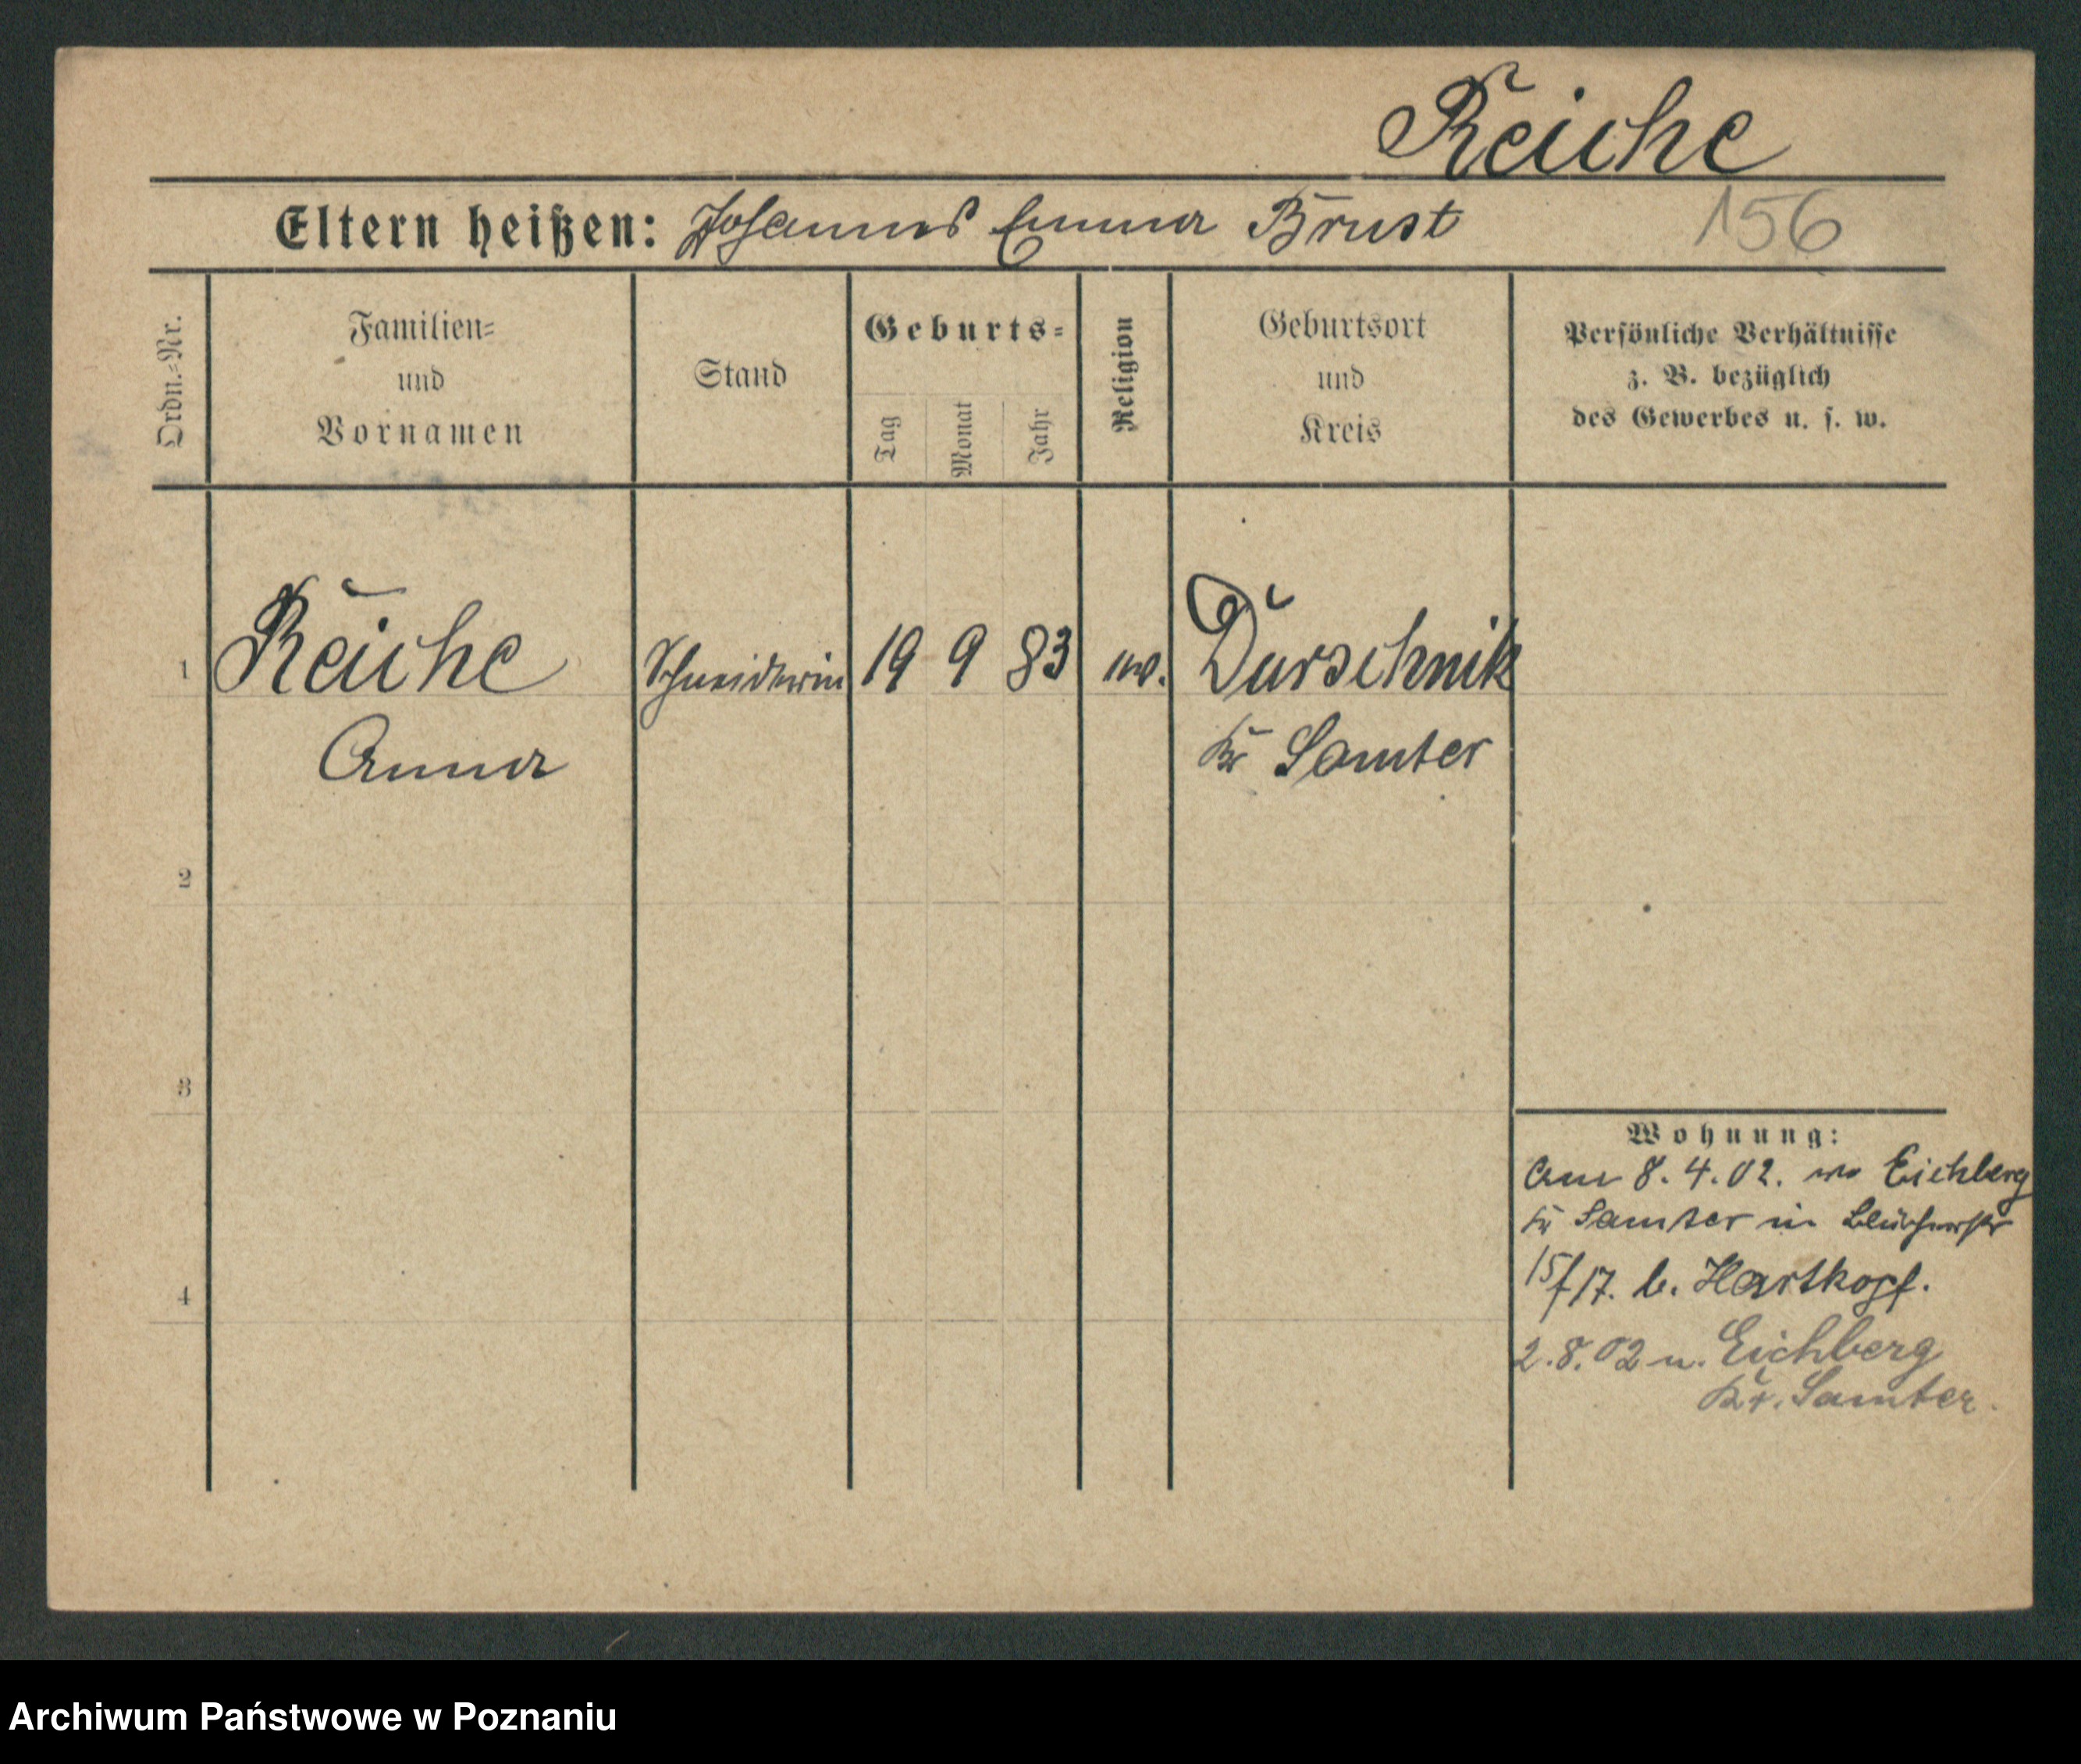 Reiche
Eltern heißen: Johannes Emma Brust 156
Ordn.-Nr.
Familien=
und
Vornamen
Stand
Geburts=
Tag
Monat
Jahr
Religion
Geburtsort
und
Kreis
Persönliche Verhältnisse
z. B. bezüglich
des Gewerbes u. s. w.
1 Reiche Schneiderin 19 9 83 Durschnik
Anna Kr Samter
2
3
4
Wohnung:
Am 8.4.02. Eichberg
Kr Samter in Blücherstr
15/17. b. Hartkopf.
2.8.02 n. Eichberg
Kr. Samter.
Archiwum Państwowe w Poznaniu